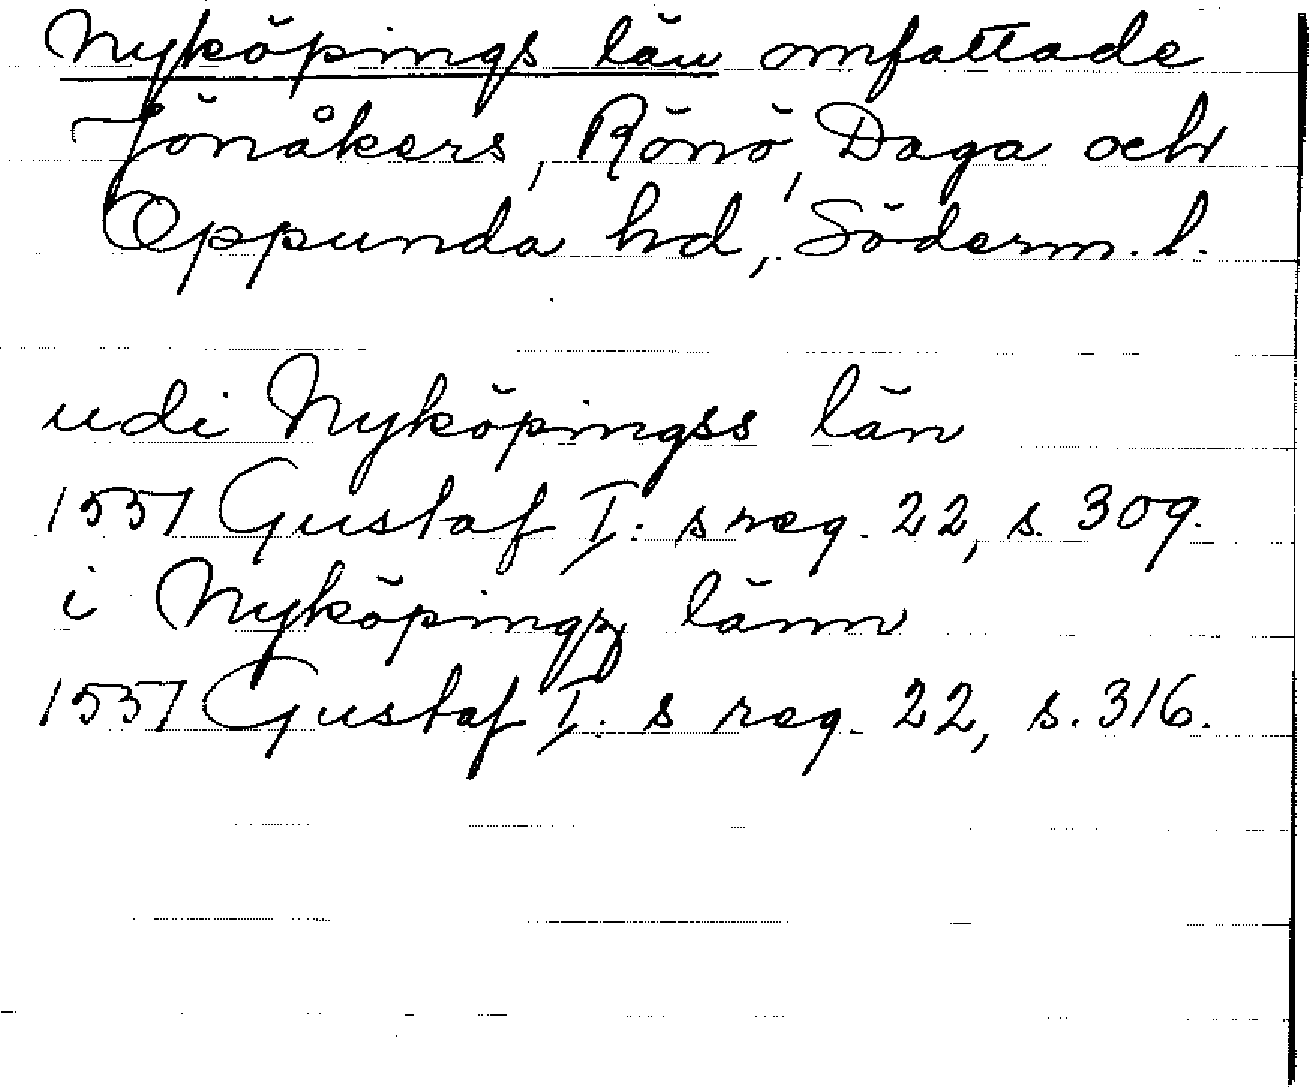 Nyköpings län omfattade
Jönåkers, Rönö, Daga och
Oppunda hd, Söderm. l.
udi Nyköpingss län
1551 Gustaf I:s reg. 22, s. 309.
i Nyköpingz länn
1551 Gustaf I:s reg. 22, s. 316.